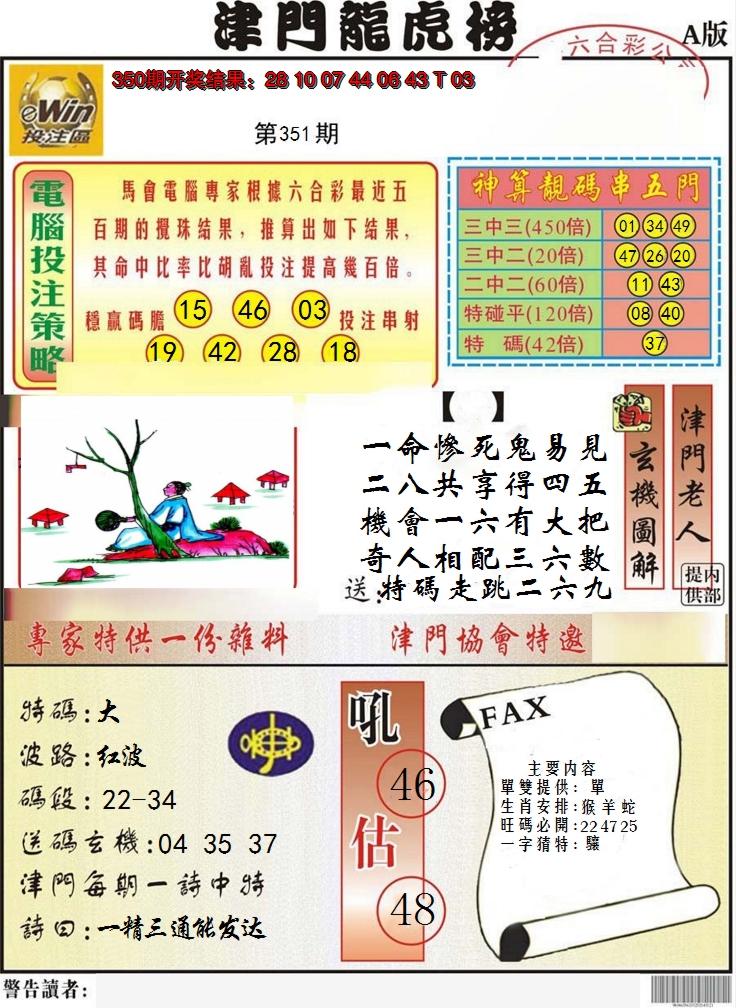 津門龍虎榜
A版
六合彩公
350期开奖结果：28 10 07 44 06 43 T 03
eWin
投注區
第351期
電腦投注策略
馬會電腦專家根據六合彩最近五
百期的攪珠结果，推算出如下结果，
其命中比率比胡亂投注提高幾百倍。
穩贏碼膽 15 46 03 投注串射
19 42 28 18
神算靚碼串五門
三中三(450倍) 01 34 49
三中二(20倍) 47 26 20
二中二(60倍) 11 43
特碰平(120倍) 08 40
特 碼(42倍) 37
【 】
一命慘死鬼易見
二八共享得四五
機會一六有大把
奇人相配三六數
送:特碼走跳二六九
玄機圖解
津門老人
内部提供
專家特供一份雜料
津門協會特邀
特碼:大
波路:红波
碼段:22-34
送碼玄機:04 35 37
津門每期一詩中特
詩曰:一精三通能发达
吼估
46
48
FAX
主要内容
單雙提供：單
生肖安排:猴羊蛇
旺碼必開:22 47 25
一字猜特：驤
警告讀者: